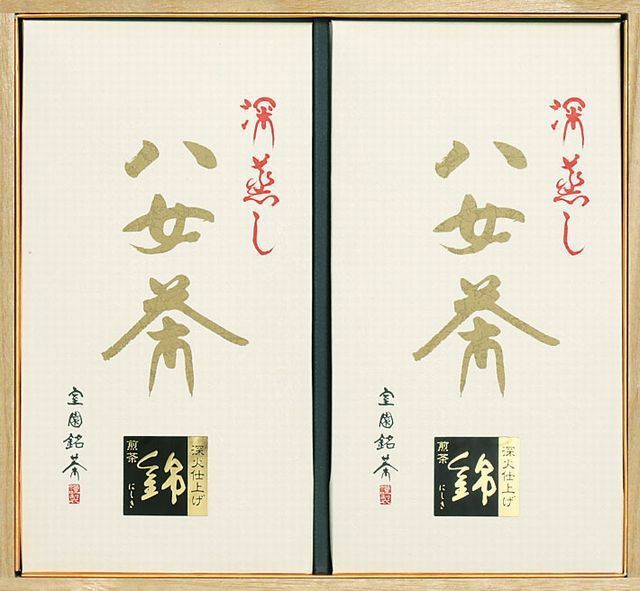 深蒸し
八女茶
室園銘茶
謹製
深火仕上げ
煎茶
錦
にしき
深蒸し
八女茶
室園銘茶
謹製
深火仕上げ
煎茶
錦
にしき